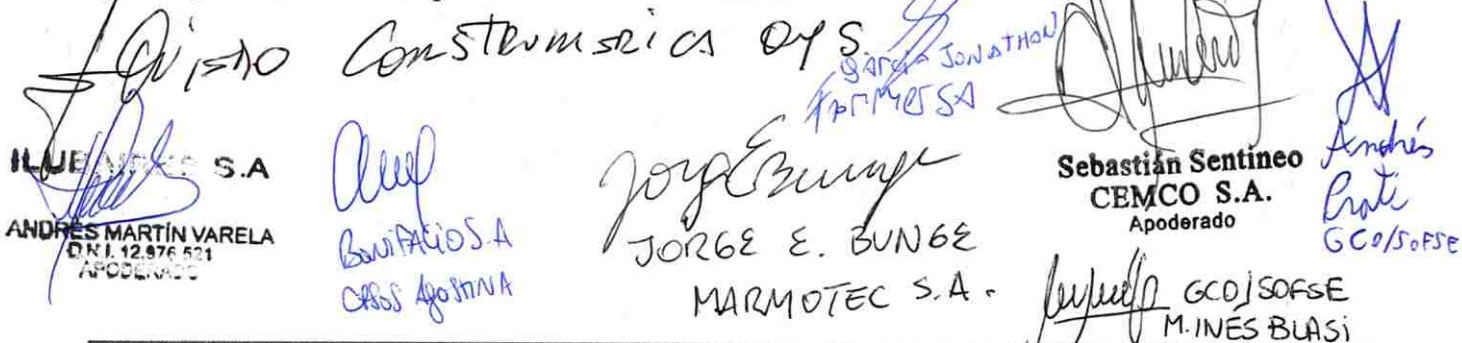 CONSTRUMERICA
GARCIA JONATHON
ILUBAIRES S.A
ANDRÉS MARTÍN VARELA
D.N.I. 12.976.521
APODERADO
BONIFACIO S.A
CASOS AGOSTINA
Jorge E Bunge
JORGE E. BUNGE
MARMOTEC S.A.
Sebastián Sentineo
CEMCO S.A.
Apoderado
Andrés
Prati
GCO/SOFSE
GCO/SOFSE
M. INÉS BLASI